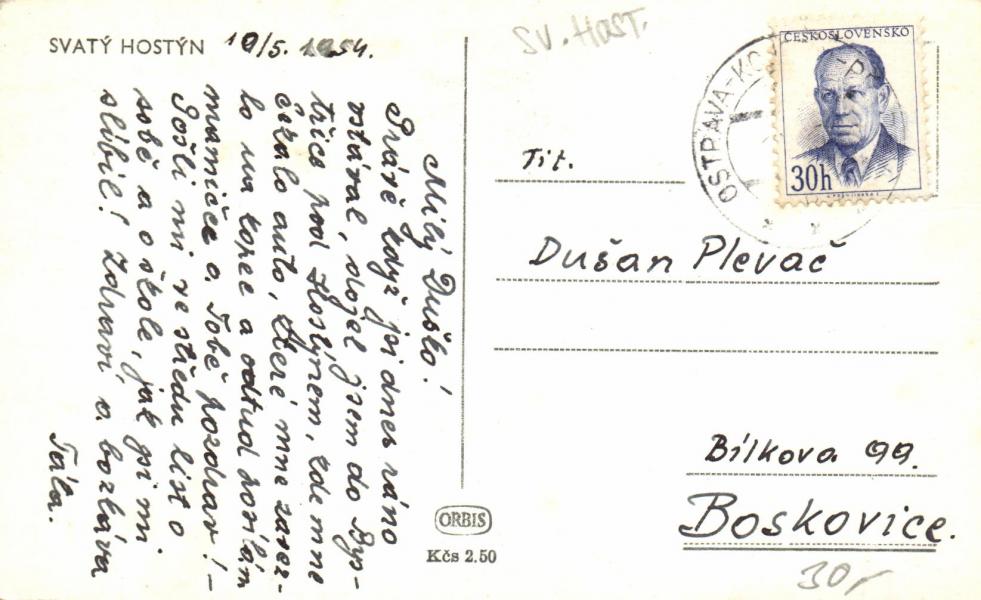 SVATÝ HOSTÝN 10/5. 1954.
SV. HOST.
Milý Duško!
Právě když jsi dnes ráno
vstával, dojel jsem do Bys-
třice pod Hostýnem, kde mne
čekalo auto, které mne zavez-
lo na kopec a odtud posílám
mamičce a Tobě pozdrav! –
Pošli mi ve středu list o
sobě a o škole, jak jsi mi
slíbil! Zdraví a bozkáva
Táta.
ORBIS
Kčs 2.50
ČESKOSLOVENSKO
30h
OSTRAVA-
Tit.
Dušan Plevač
Bílkova 99.
Boskovice.
30,-